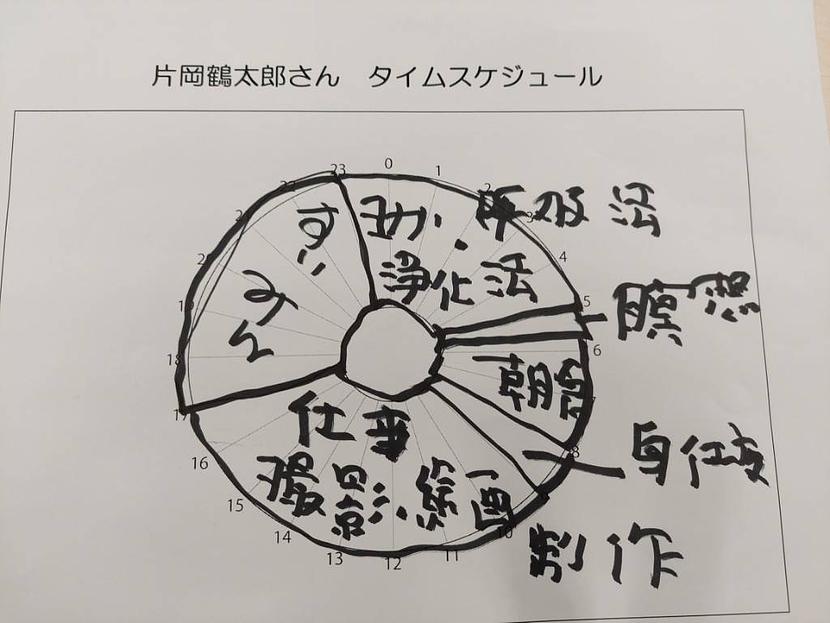 片岡鶴太郎さん タイムスケジュール
23 0 1 2 3 4 5 6 7 8 10 11 12 13 14 15 16 17 18 19 20 21 22
ヨガ、呼吸法
浄化法
瞑想
朝食
身仕度
仕事
撮影、絵画
製作
すいみん